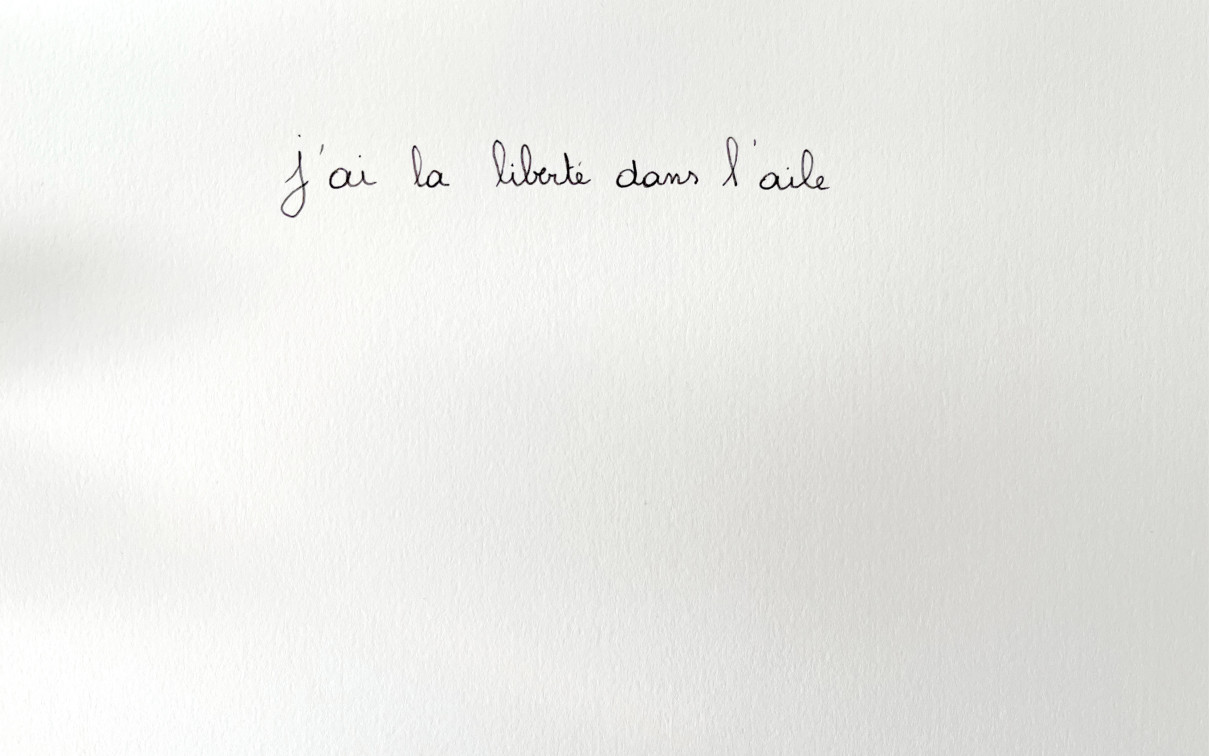 j'ai la liberté dans l'aile